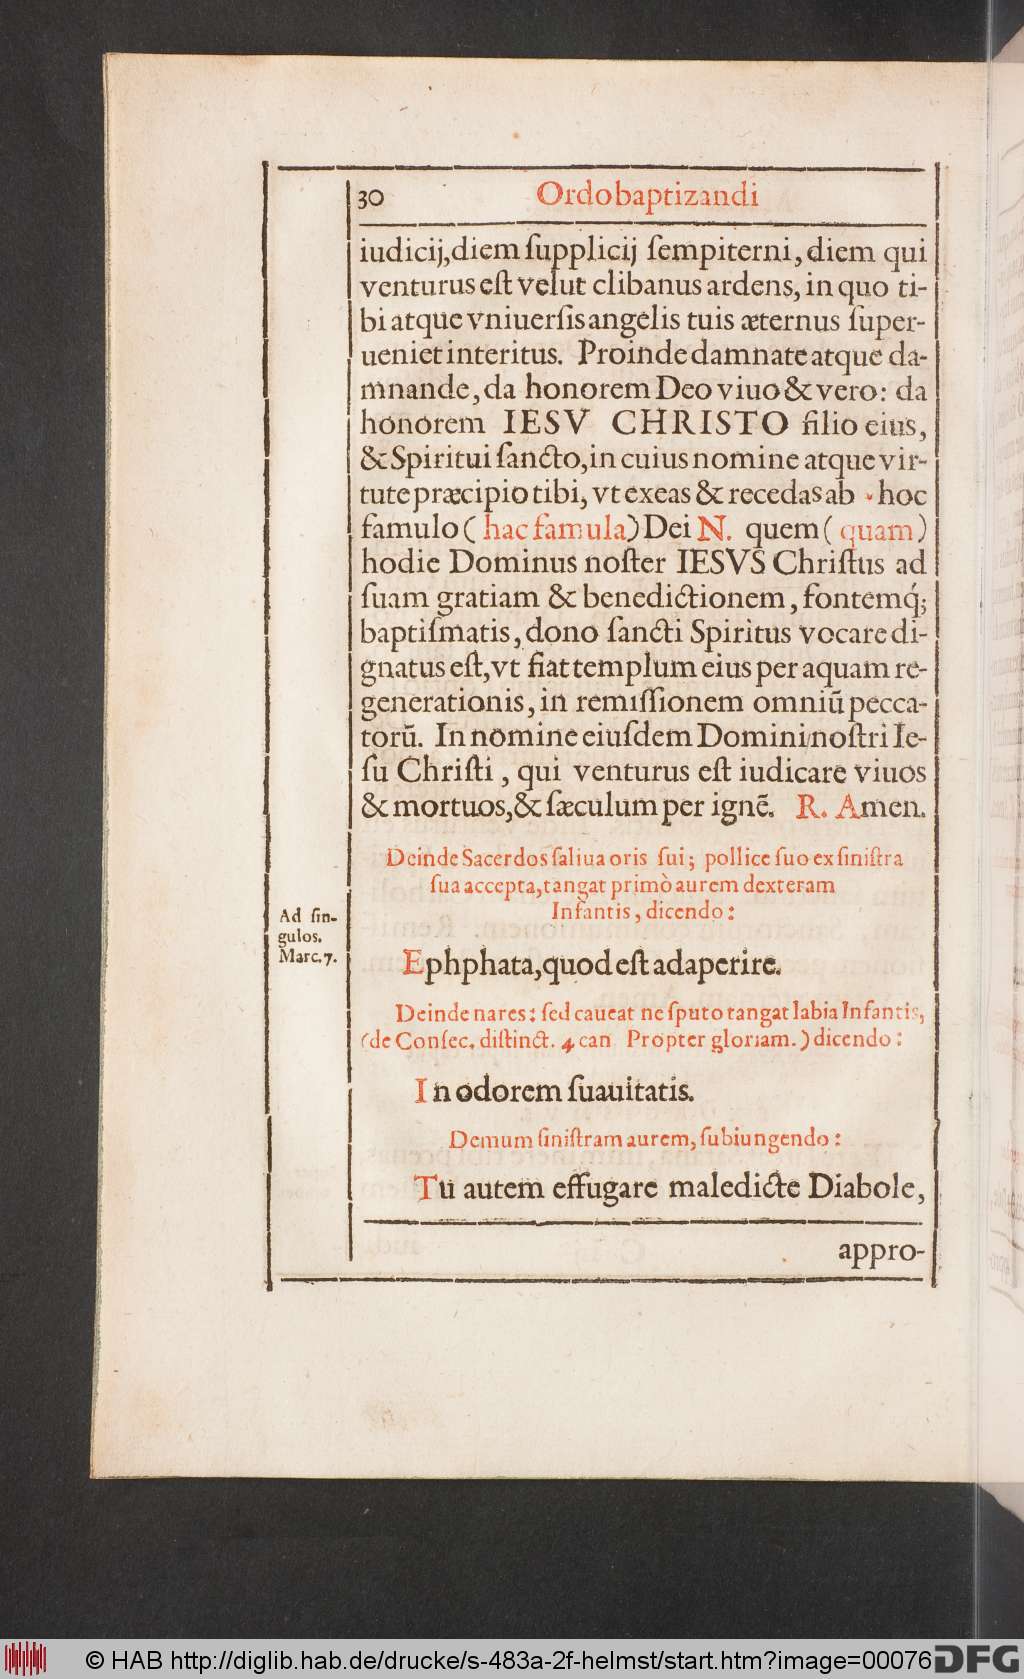 30 Ordo baptizandi
iudicij, diem ſupplicij ſempiterni, diem qui
venturus eſt velut clibanus ardens, in quo ti-
bi atque vniuerſis angelis tuis æternus ſuper-
ueniet interitus. Proinde damnate atque da-
mnande, da honorem Deo viuo & vero: da
honorem IESV CHRISTO filio eius,
& Spiritui ſancto, in cuius nomine atque vir-
tute præcipio tibi, vt exeas & recedas ab hoc
famulo ( hac famula) Dei N. quem ( quam )
hodie Dominus noſter IESVS Chriſtus ad
ſuam gratiam & benedictionem, fontemq́;
baptiſmatis, dono ſancti Spiritus vocare di-
gnatus eſt, vt fiat templum eius per aquam re-
generationis, in remiſſionem omniũ pecca-
torũ. In nomine eiuſdem Domini noſtri Ie-
ſu Chriſti , qui venturus eſt iudicare viuos
& mortuos, & ſæculum per ignẽ. R. Amen.
Deinde Sacerdos ſaliua oris ſui; pollice ſuo ex ſiniſtra
ſua accepta, tangat primò aurem dexteram
Infantis, dicendo:
Ad ſin-
gulos.
Marc. 7.
Ephphata, quod eſt adaperire.
Deinde nares: ſed caueat ne ſputo tangat labia Infantis,
(de Conſec. diſtinct. 4 can Propter gloriam.) dicendo:
In odorem ſuauitatis.
Demum ſiniſtram aurem, ſubiungendo:
Tu autem effugare maledicte Diabole,
appro-
© HAB http://diglib.hab.de/drucke/s-483a-2f-helmst/start.htm?image=00076
DFG